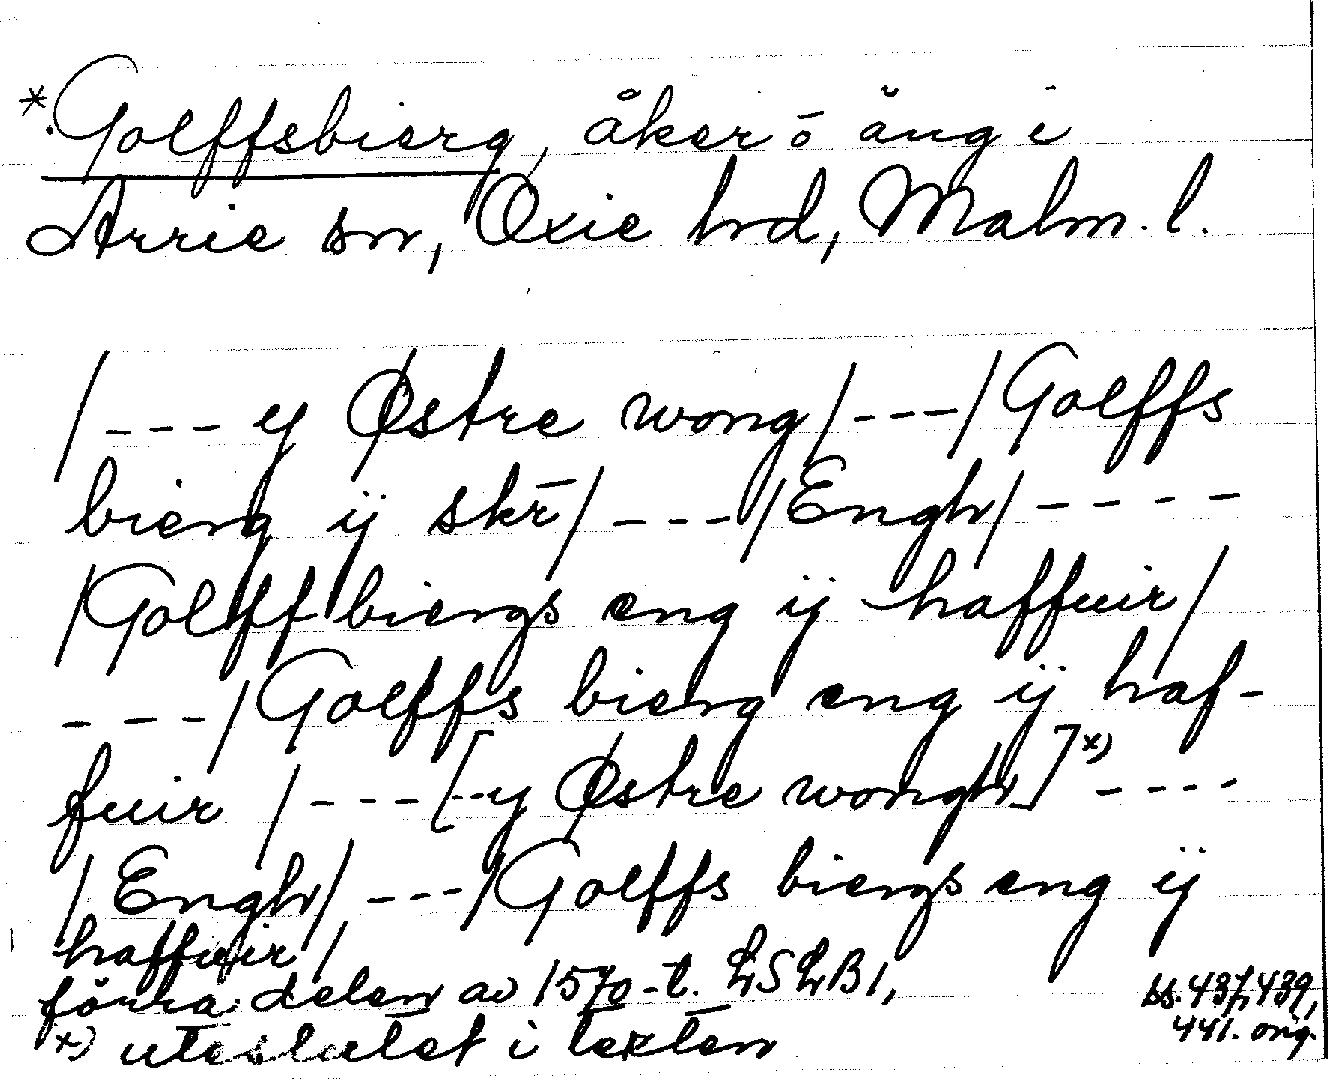 *Golffsbierg, åker ō äng i
Arrie sn, Oxie hrd, Malm. l.
/--- y Østre wong/---/Golffs
bierg ij skr̄/---/Engh/----
/Golff biergs eng ij haffuir/
---/Golffs bierg eng ij haf-
fuir /---[--y Østre wongh]x) ----
/Engh/---/Golffs biergs eng ij
haffuir/
förra delen av 1570-t. LSLB1,
ss. 437, 439,
441. orig.
x) uteslutet i texten